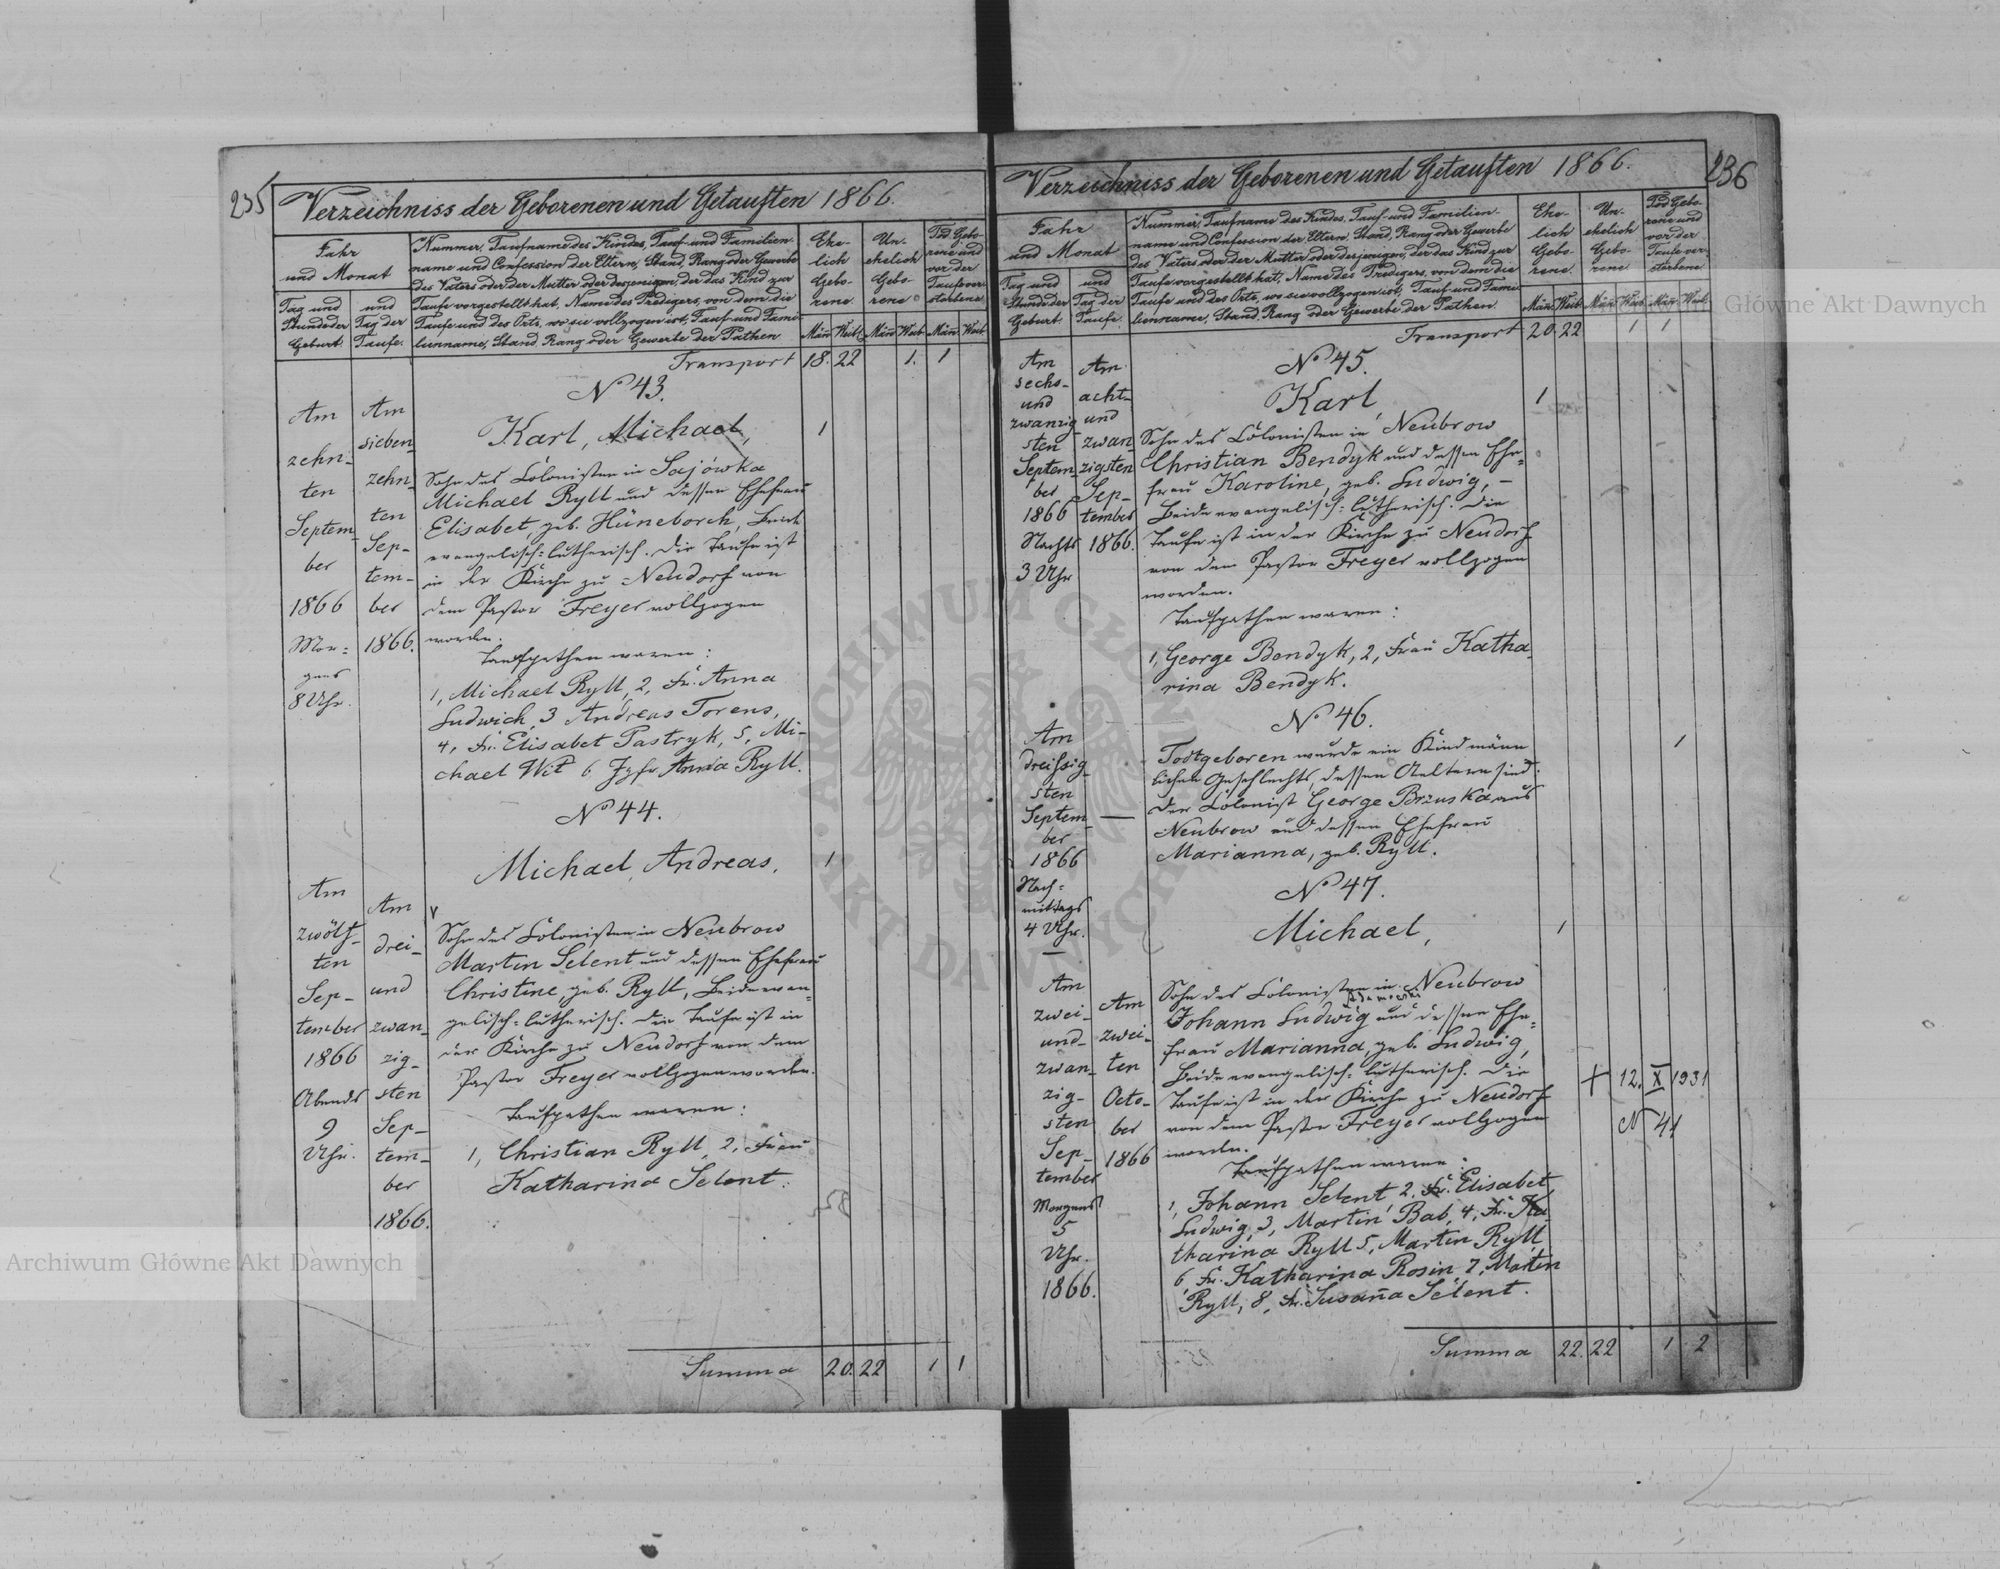 235
Verzeichniss der Geborenen und Getauften 1866.
Jahr
und Monat
Tag und
Stunde der
Geburt.
und
Tag der
Taufe.
Nummer, Taufname des Kindes, Tauf- und Familien-
name und Confession der Eltern, Stand, Rang oder Gewerbe
des Vaters oder der Mutter oder desjenigen, der das Kind zur
Taufe vorgestellt hat, Name des Predigers, von dem die
Taufe und des Orts, wo sie vollzogen ist, Tauf- und Fami-
lienname, Stand, Rang oder Gewerbe der Pathen
Ehe-
lich
Gebo-
rene.
Un-
ehelich
Gebo-
rene
Tod Gebo-
rene und
vor der
Taufe ver-
storbene
Män Weib Män Weib Män Weib
Transport 18. 22 1. 1
Am
zehn-
ten
Septem-
ber
1866
Mor-
gens
8 Uhr.
Am
sieben-
zehn-
ten
Sep-
tem-
ber
1866.
No 43.
Karl, Michael, 1
Sohn des Colonisten in Sajówka
Michael Ryll und dessen Ehefrau
Elisabet, geb. Hüneborch, Beide
evangelisch-lutherisch. Die Taufe ist
in der Kirche zu Neudorf von
dem Pastor Freyer vollzogen
worden.
Taufpathen waren:
1, Michael Ryll, 2, Fr. Anna
Ludwich, 3 Andreas Torens,
4, Fr. Elisabet Pastryk, 5, Mi-
chael Wit 6 Jgfr Anna Ryll.
Am
zwölf-
ten
Sep-
tember
1866
Abends
9
Uhr.
Am
drei-
und
zwan-
zig-
sten
Sep-
tem-
ber
1866.
No 44.
Michael, Andreas, 1
Sohn des Colonisten in Neubrow
Martin Selent und dessen Ehefrau
Christine, geb. Ryll, Beide evan-
gelisch-lutherisch. Die Taufe ist in
der Kirche zu Neudorf von dem
Pastor Freyer vollzogen worden.
Taufpathen waren:
1, Christian Ryll, 2, Frau
Katharina Selent.
Summa 20. 22 1 1
236
Verzeichniss der Geborenen und Getauften 1866.
Jahr
und Monat
Tag und
Stunde der
Geburt.
und
Tag der
Taufe.
Nummer, Taufname des Kindes, Tauf- und Familien-
name und Confession der Eltern, Stand, Rang oder Gewerbe
des Vaters oder der Mutter oder desjenigen, der das Kind zur
Taufe vorgestellt hat, Name des Predigers, von dem die
Taufe und des Orts, wo sie vollzogen ist, Tauf- und Fami-
lienname, Stand, Rang oder Gewerbe der Pathen
Ehe-
lich
Gebo-
rene.
Un-
ehelich
Gebo-
rene
Tod Gebo-
rene und
vor der
Taufe ver-
storbene
Män Weib Män Weib Män Weib
Transport 20. 22 1 1
Am
sechs-
und
zwanzig-
sten
Septem-
ber
1866
Nachts
3 Uhr
Am
acht-
und
zwan-
zigsten
Sep-
tember
1866.
No 45.
Karl, 1
Sohn des Colonisten in Neubrow
Christian Bendyk und dessen Ehe-
frau Karoline, geb. Ludwig, –
Beide evangelisch-lutherisch. Die
Taufe ist in der Kirche zu Neudorf
von dem Pastor Freyer vollzogen
worden.
Taufpathen waren:
1, George Bendyk, 2, Frau Katha-
rina Bendyk.
Am
dreissig-
sten
Septem-
ber
1866
Nach-
mittags
4 Uhr.
—
No 46.
Todtgeboren wurde ein Kind männ 1
lichen Geschlechts, dessen Aeltern sind:
der Colonist George Brzuska aus
Neubrow und dessen Ehefrau
Marianna, geb. Ryll.
Am
zwei-
und-
zwan-
zig-
sten
Sep-
tember
Morgens
5
Uhr.
1866.
Am
zwei-
ten
Octo-
ber
1866
No 47.
Michael, 1
Sohn des Colonisten in Neubrow
Johann Ludwig und dessen Ehe-
frau Marianna, geb. Ludwig,
Beide evangelisch-lutherisch. Die
Taufe ist in der Kirche zu Neudorf
von dem Pastor Freyer vollzogen
worden.
+ 12. X 1931
N 41
Taufpathen waren:
1, Johann Selent, 2, Fr. Elisabet
Ludwig, 3, Martin Bab, 4, Fr. Ka-
tharina Ryll 5, Martin Ryll
6 Fr. Katharina Rosin 7, Marten
Ryll, 8, Fr. Susaña Selent.
Summa 22. 22 1 2
Archiwum Główne Akt Dawnych
Archiwum Główne Akt Dawnych
ARCHIWUM GŁÓWNE AKT DAWNYCH